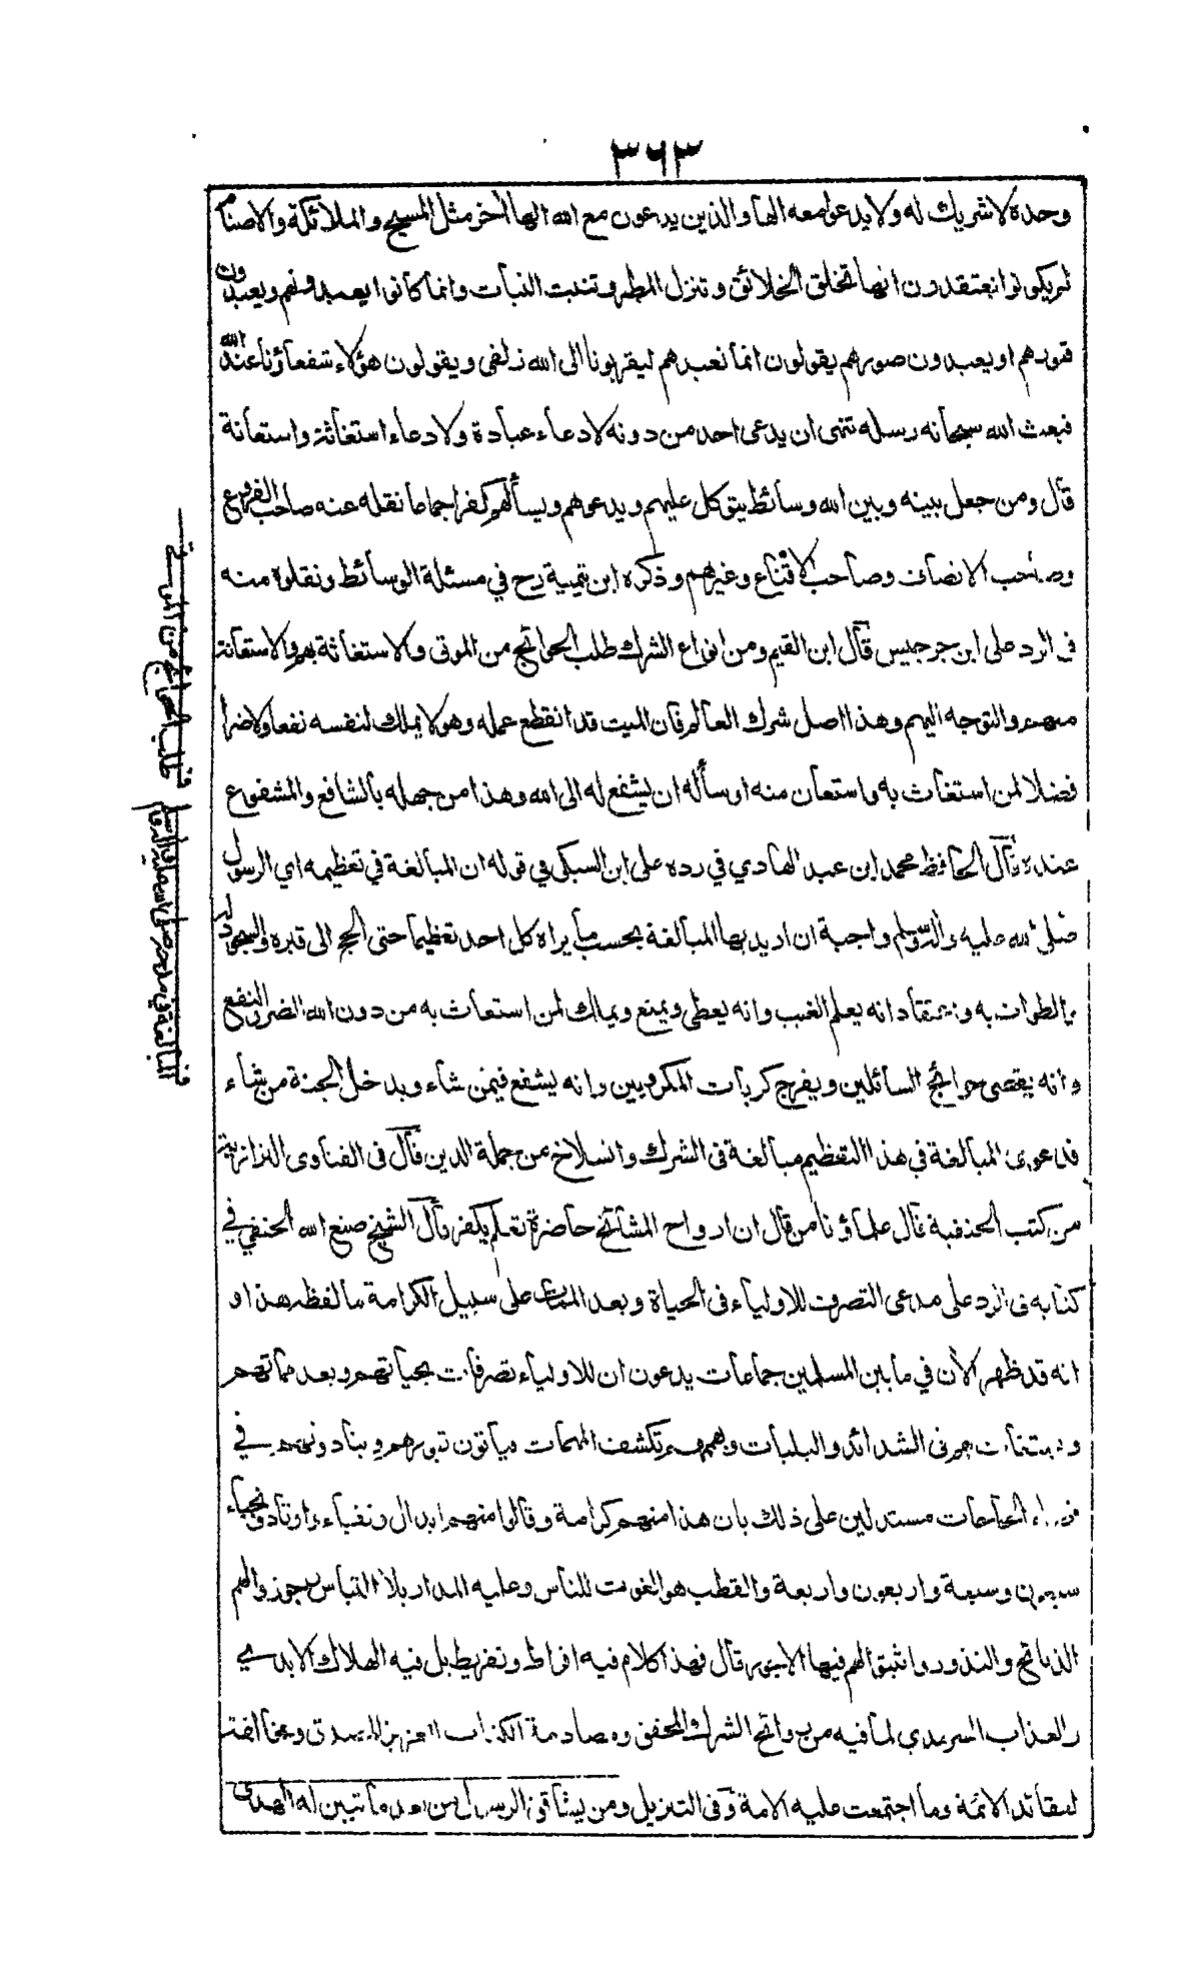 ٣٦٣
وحده لا شريك له ولا يدعوا معه الها والذين يدعون مع الله الها اخر مثل المسيح والملائكة والاصنام
لم يكونوا يعتقدون انها تخلق الخلائق وتنزل المطر وتنبت النبات وانما كانوا يعبدونهم ويعبدون
قبورهم او يعبدون صورهم يقولون انما نعبدهم ليقربونا الى الله زلفى ويقولون هؤلاء شفعاؤنا عند الله
فبعث الله سبحانه رسله تنهى ان يدعى احد من دونه لا دعاء عبادة ولا دعاء استغاثة واستعانة
قال ومن جعل بينه وبين الله وسائط يتوكل عليهم ويدعوهم ويسألهم كفر اجماعا نقله عنه صاحب الفروع
وصاحب الانصاف وصاحب الاقناع وغيرهم وذكره ابن تيمية رح في مسئلة الوسائط ونقلوه منه
في الرد على ابن جرجيس قال ابن القيم ومن انواع الشرك طلب الحوائج من الموتى والاستغاثة بهم والاستعانة
منهم والتوجه اليهم وهذا اصل شرك العالم فان الميت قد انقطع عمله وهو لا يملك لنفسه نفعا ولا ضرا
فضلا لمن استغاث به واستعان منه او سأله ان يشفع له الى الله وهذا من جهله بالشافع والمشفوع
عنده قال الحافظ محمد ابن عبد الهادي في رده على ابن السبكي في قوله ان المبالغة في تعظيمه اي الرسول
صلى الله عليه وآله وسلم واجبة ان اريد بها المبالغة بحسب ما يراه كل احد تعظيما حتى الحج الى قبره والسجود له
والطواف به ويعتقد انه يعلم الغيب وانه يعطى ويمنع ويملك لمن استغاث به من دون الله الضر والنفع
وانه يقضى حوائج السائلين ويفرج كربات المكروبين وانه يشفع فيمن شاء ويدخل الجنة من يشاء
فدعوى المبالغة في هذا التعظيم مبالغة في الشرك وانسلاخ من جملة الدين قال في الفتاوى البزازية
من كتب الحنفية قال علماؤنا من قال ان ارواح المشائخ حاضرة تعلم يكفر قال الشيخ صنع الله الحنفي في
كتابه في الرد على مدعى التصرف للاولياء في الحياة وبعد الممات على سبيل الكرامة ما لفظه هذا و
انه قد ظهر الأن في ما بين المسلمين جماعات يدعون ان للاولياء تصرفات بحياتهم وبعد مماتهم
ويستغاث بهم في الشدائد والبليات وبهممهم تكشف المهمات فيأتون قبورهم وينادونهم في
قضاء الحاجات مستدلين على ذلك بان هذا منهم كرامة وقالوا منهم ابدال ونقباء واوتاد ونجباء
سبعون وسبعة واربعون واربعة والقطب هو الغوث للناس وعليه المدار بلا التباس وجوزوا لهم
الذبائح والنذور واثبتوا لهم فيها الاجور قال فهذا كلام فيه افراط وتفريط بل فيه الهلاك الابدي
والعذاب السرمدي لما فيه من روائح الشرك المحقق ومصادمة الكتاب العزيز المصدق ومخالفة
لعقائد الائمة وما اجتمعت عليه الامة وفي التنزيل ومن يشاقق الرسول من بعد ما تبين له الهدى
ف طلب الحوائج من الموتى
ف المبالغة في مدحه صلى الله عليه وآله وسلم